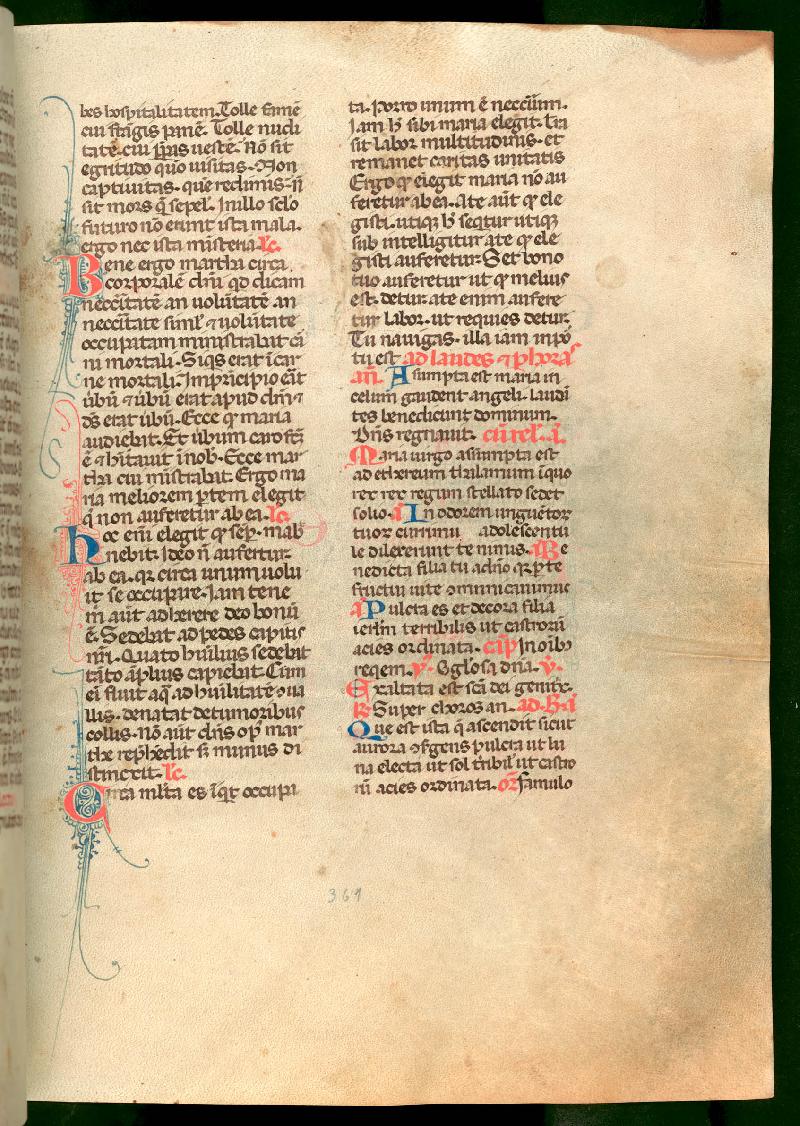 bes hospitalitatem. Tolle famē
cui frāgis panē. Tolle nudi
tatē. cui p̄pas uestē. Nō sit
egritudo quō uisitas. Non
captiuitas. quē redimis. ñ
sit mors q̄ sepel. In illo sclo
futuro nō erunt ista mala.
ergo nec ista misteria lc̄.
Bene ergo martha circa
corporalē dm̄i qd dicam
neccitatē an uolūtatē an
neccitate siml̄ ⁊ uolūtate
occupatam ministrabat ca
ni mortali. Siqs erat i car
ne mortali. Imprīcipio eāt
ūbū ⁊ ūbū erat apud dm̄ ⁊
ds̄ erat ūbū. Ecce qᵈ maria
audiebat. Et ūbum caro fc̄
ē ⁊ hītauit ī nob. Ecce mar
tha cui mīstrabat. Ergo ma
ria meliorem ptem elegit
q̄ non auferetur ab ea. lc̄.
hoc eni elegit qᵈ sep̄. mab
nebit. Ideo ñ aufertur
ab ea. qz circa unum uolu
it se occupare. Iam tene
m̄ aūt adherere deo bonū
ē. Sedebat ad pedes capitis
nr̄i. Quāto hūilius sedebat
tāto āplius capiebat. Cum
ei fluit aq̄ ad hūilitatē ua
llis. denatat de tumoribus
collis. Nō aūt dn̄s op̄ mar
the rep̄hēdit sꝫ munus di
stinctit. lc̄.
Circa ml̄ta es īqt occupa
ta. Porro unum ē neccīum.
Iam h̄ sibi maria elegit. tra
sit labor multitudinis. et
remanet caritas unitatis
Ergo qᵈ elegit maria nō au
feretur ab ea. Ate aūt qᵈ ele
gisti. utiqz h̄ seqtur utiqz
sub intelligitur ate qᵈ ele
gisti auferetur. Set bono
tuo auferetur ut qᵈ melius
est. detur. ate enim aufere
tur labor. ut requies detur.
Tu nauigas. illa iam inpō
tu est ad laudes ⁊ p horas
an̄. Asumpta est maria in
celum gaudent angeli. laudā
tes benedicunt dominum.
Dn̄s regnauit. cū rel. a.
Maria uirgo assumpta est
ad ethereum thalamum īquo
rex regum stellato sedet
solio. a In odorem unguētor
tuor currimus adolescentu
le dilexerunt te nimis. a Be
nedicta filia tu a dn̄o qz p te
fructū uite cōmunicauimus
a Pulcra es et decora filia
ierl̄m terribilis ut castrorū
acies ordinata. cap̄ In oīb
reqem. v̄. Oglosa dn̄a. v̄.
Exaltata est sc̄a dei genitx.
R̄. Super choros an. ad. Bā
Que est ista q̄ ascendit sicut
aurora ꝯsgens pulcra ut lu
na electa ut sol tribil ut castro
rū acies ordinata. or̄ famulo
361